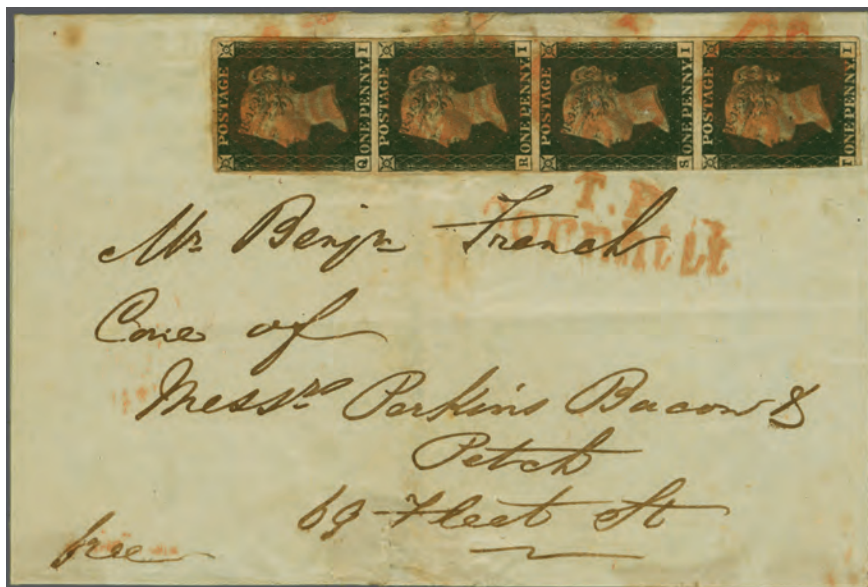 POSTAGE ONE PENNY Q I
POSTAGE ONE PENNY R I
POSTAGE ONE PENNY S I
POSTAGE ONE PENNY T I
T.P
Mr. Benjn French
Care of
Messrs Perkins Bacon &
Petch
69 Fleet St
free